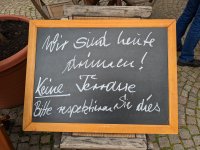 Wir sind heute
drinnen!
Keine Terrasse
Bitte respektieren Sie dies